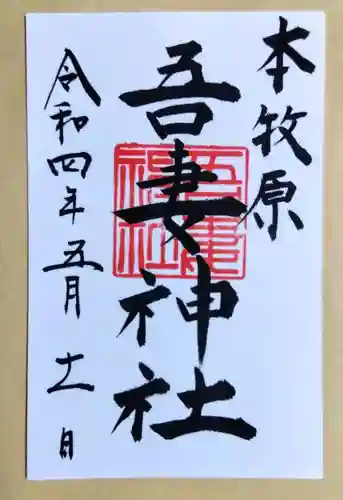 本牧原
吾妻神社
令和四年五月十一日
吾妻神社